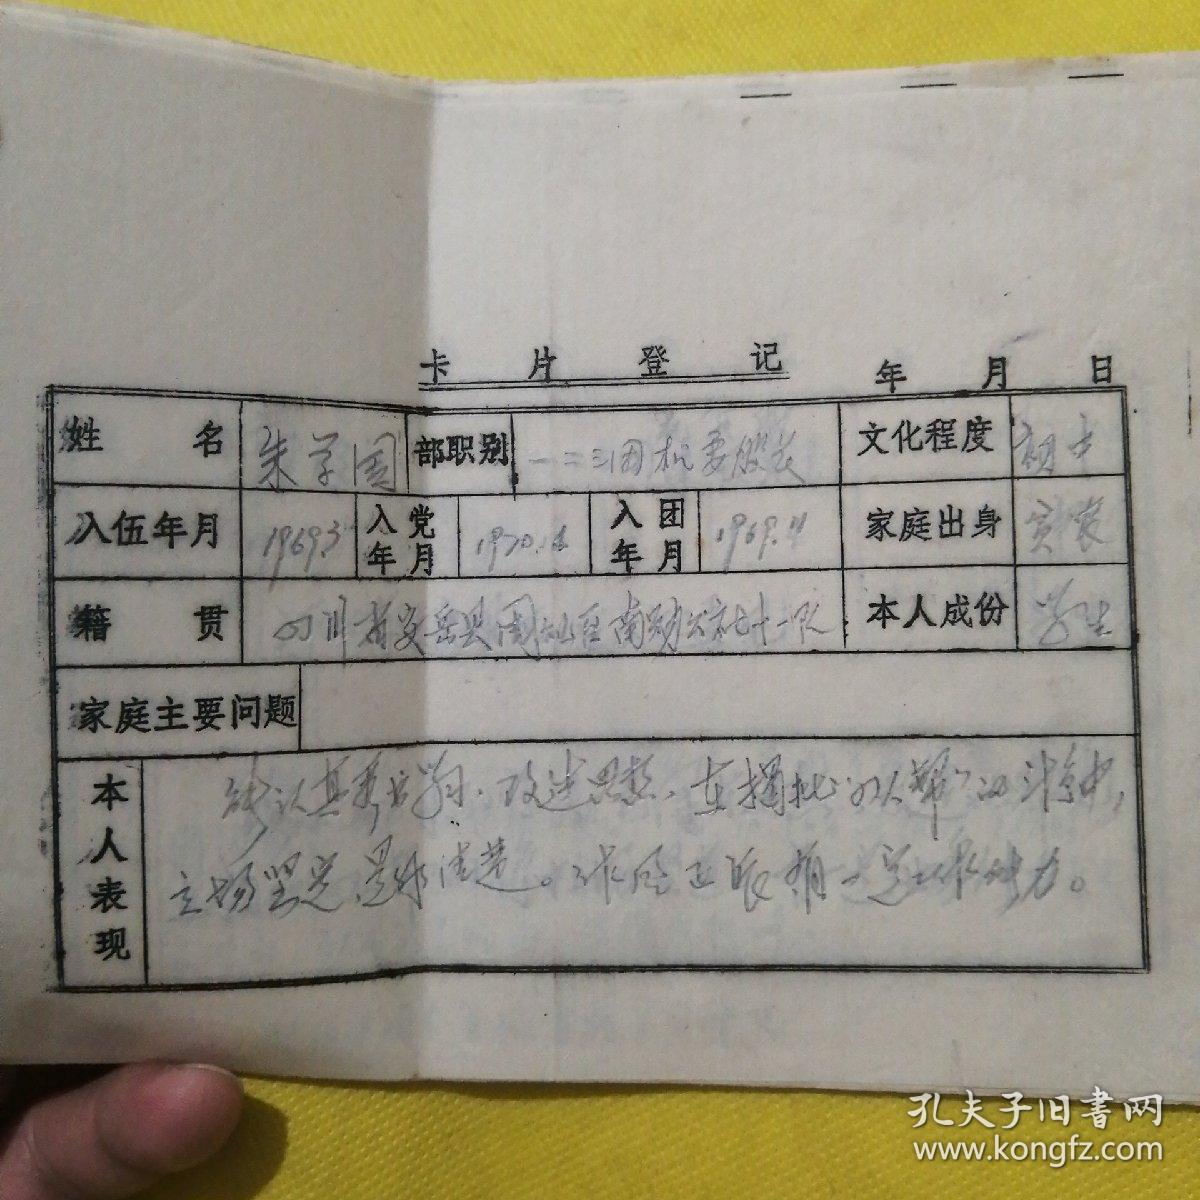 卡片登记
年 月 日
姓名 朱学国 部职别 一二三团机要股长 文化程度 初中
入伍年月 1969.3 入党年月 1970.12 入团年月 1969.4 家庭出身 贫农
籍贯 四川省安岳县 区南 公社十一队 本人成份 学生
家庭主要问题
本人表现 能认真看书学习、改造思想、在揭批"四人帮"的斗争中,
立场坚定,是非清楚。作风正派有一定工作能力。
孔夫子旧书网
www.kongfz.com